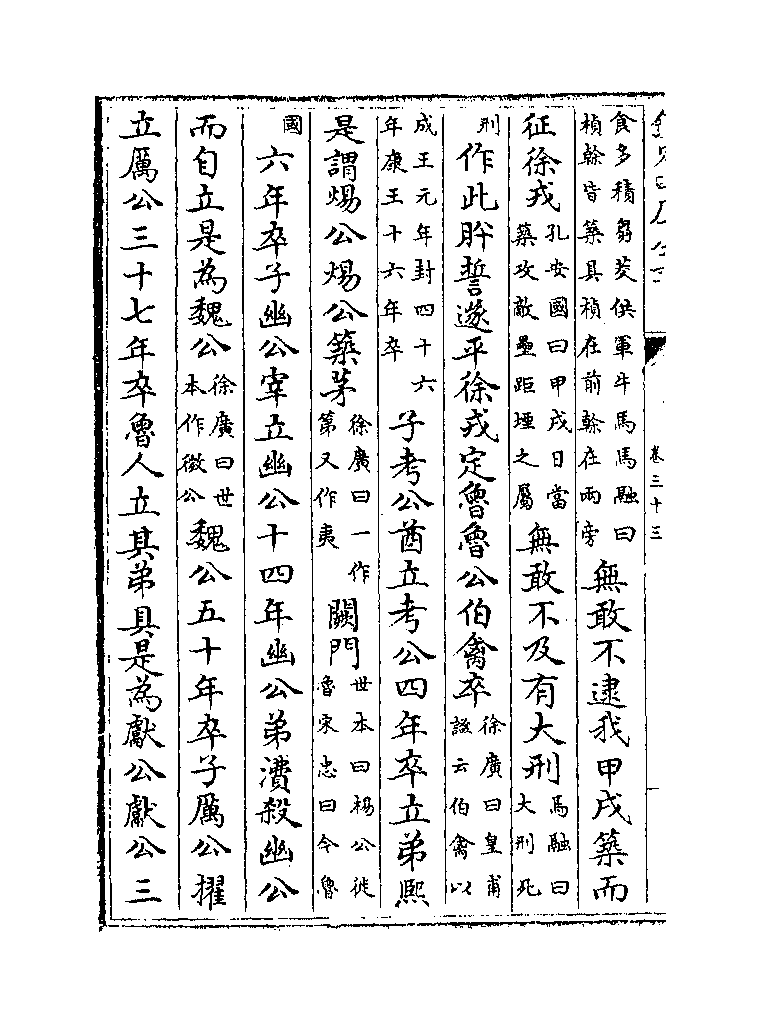 卷三十三
食多積芻茭供軍牛馬馬融曰
楨榦皆築具楨在前榦在兩旁無敢不逮我甲戌築而
征徐戎孔安國曰甲戌日當
築攻敵壘距堙之屬無敢不及有大刑馬融曰
大刑死
刑作此肸誓遂平徐戎定魯魯公伯禽卒徐廣曰皇甫
謐云伯禽以
成王元年封四十六
年康王十六年卒子考公酋立考公四年卒立弟熙
是謂煬公煬公築茅徐廣曰一作
第又作夷闕門世本曰煬公徙
魯宋忠曰今魯
國六年卒子幽公宰立幽公十四年幽公弟㵒殺幽公
而自立是為魏公徐廣曰世
本作微公魏公五十年卒子厲公擢
立厲公三十七年卒魯人立其弟具是為獻公獻公三